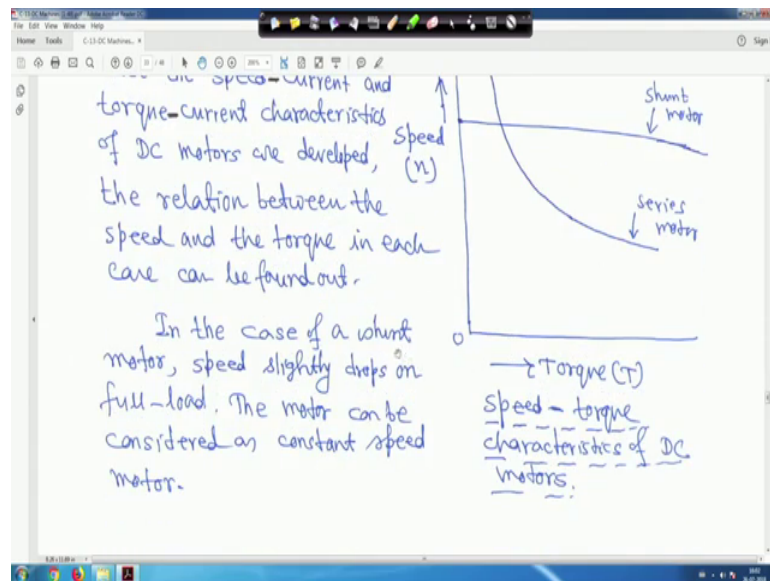 C-13-DC Machines (1-46).pdf - Adobe Acrobat Reader DC
File Edit View Window Help
Home Tools C-13-DC Machines... ×
Sign
/ 46
speed-current and
torque-current characteristics
of DC motors are developed,
the relation between the
speed and the torque in each
case can be found out.
In the case of a shunt
motor, speed slightly drops on
full-load. The motor can be
considered as constant speed
motor.
Speed
(n)
shunt
motor
series
motor
O
→ Torque (T)
Speed - torque
characteristics of DC
motors.